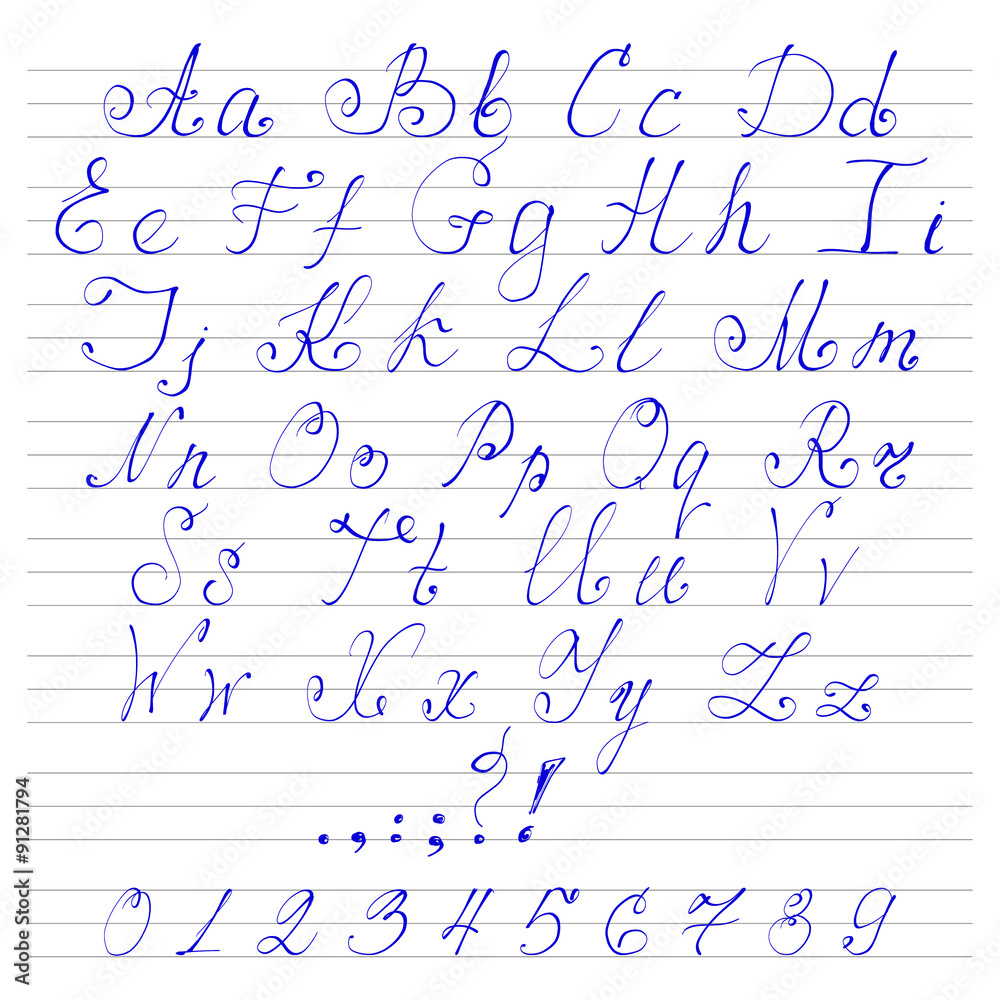 Aa Bb Cc Dd
Ee Ff Gg Hh Ii
Jj Kk Ll Mm
Nn Oo Pp Qq Rr
Ss Tt Uu Vv
Ww Xx Yy Zz
. , : ; ? !
0 1 2 3 4 5 6 7 8 9
Adobe Stock | #91281794